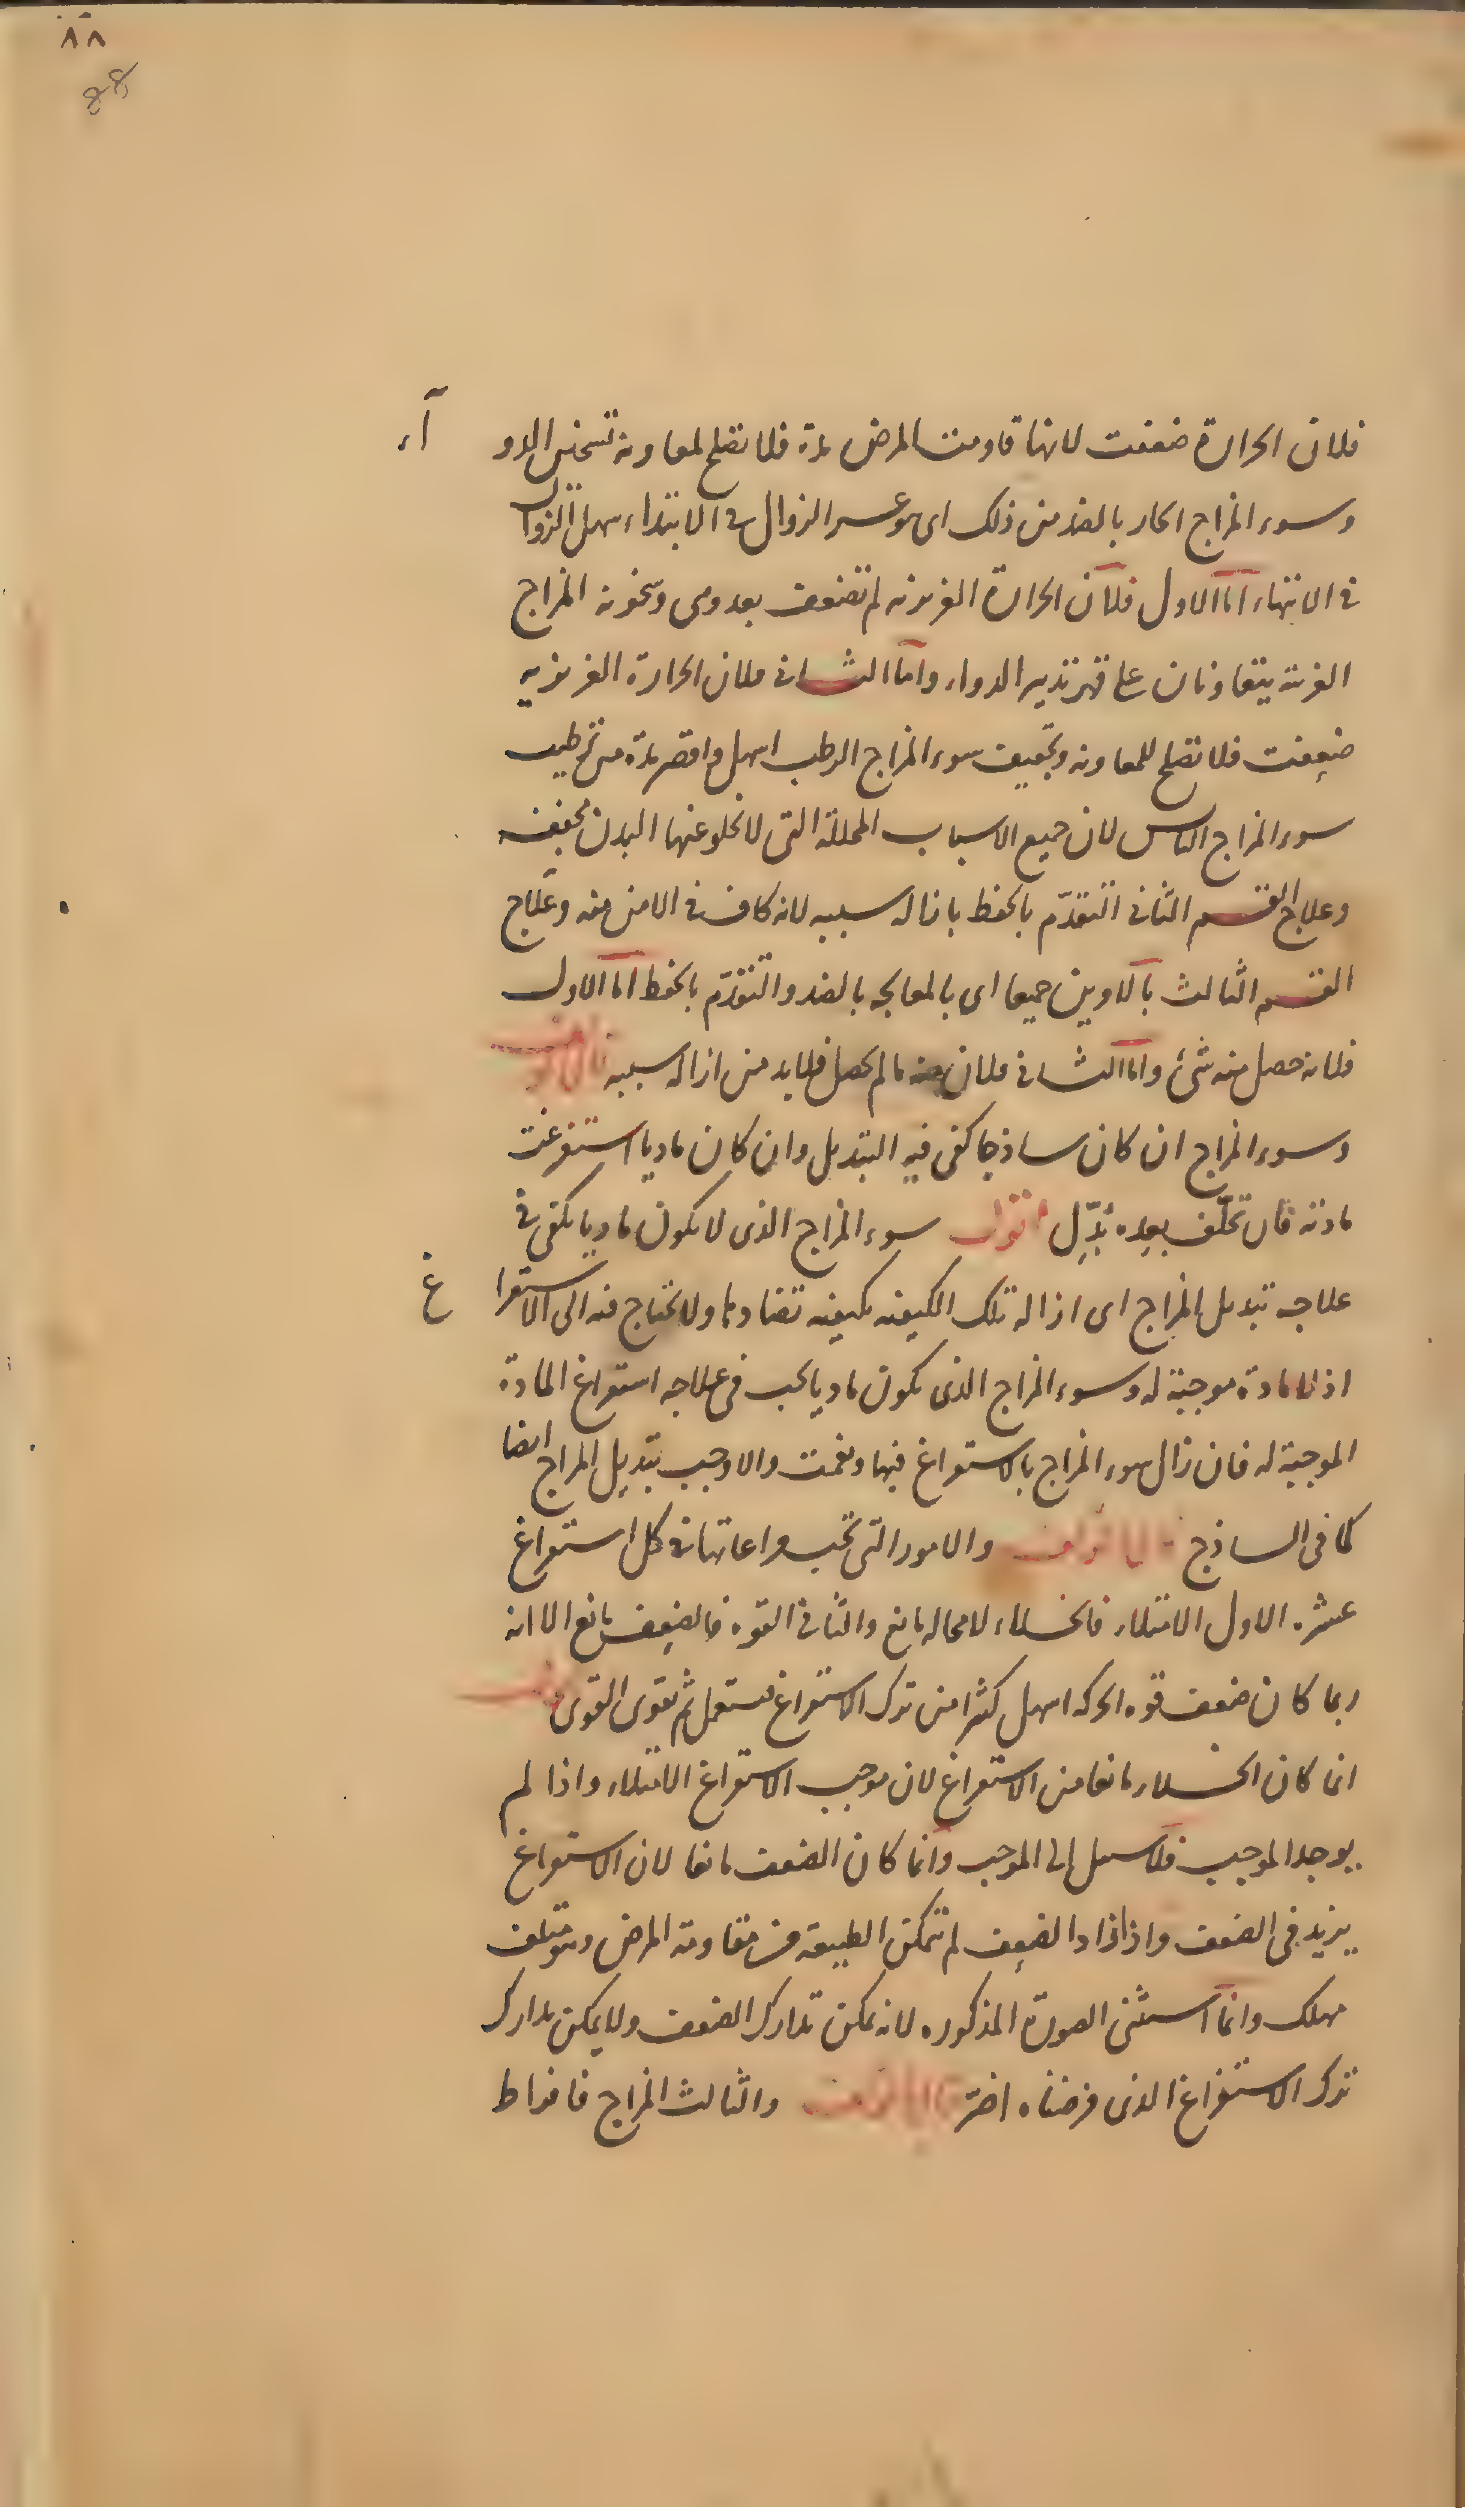 ٨٨
88
فلان الحرارة ضعفت لانها قاومت المرض مدة فلا تصلح لمعاونة تسخين الدواء
وسوء المزاج الحار بالضد من ذلك اى هو عسر الزوال فى الابتداء سهل الزوال
فى الانتهاء اما الاول فلان الحرارة الغريزية لم تضعف بعد وهى وسخونة المزاج
الغريبة يتعاونان على قهر تدبير الدواء واما الثانى فلان الحرارة الغريزية
ضعفت فلا تصلح للمعاونة وتجفيف سوء المزاج الرطب اسهل واقصر مدة من ترطيب
سوء المزاج اليابس لان جميع الاسباب المحللة التى لا يخلو عنها البدن مجففة
وعلاج القسم الثانى التقدم بالحفظ بازالة سببه لانه كاف فى الامن منه وعلاج
القسم الثالث بالامرين جميعا اى بالمعالجه بالضد والتقدم بالحفظ اما الاول
فلانه حصل منه شئ واما الثانى فلان بعضه ما لم يحصل فلا بد من ازالة سببه
وسوء المزاج ان كان ساذجا كفى فيه التبديل وان كان ماديا استفرغت
مادته فان تخلف بعده بدل اقول سوء المزاج الذى لا يكون ماديا يكفى فى
علاجه تبديل المزاج اى ازالة تلك الكيفية بكيفية تضادها ولا يحتاج فيه الى الاستفراغ
اذ لا مادة موجبة له وسوء المزاج الذى يكون ماديا يجب فى علاجه استفراغ المادة
الموجبة له فان زال سوء المزاج بالاستفراغ فبها ونعمت والا وجب تبديل المزاج ايضا
كما فى الساذج والامور التى تجب مراعاتها فى كل استفراغ
عشرة الاول الامتلاء فالخلاء لا محالة مانع والثانى القوة فالضعف مانع الا انه
ربما كان ضعف قوة الحركة اسهل كثيرا من ترك الاستفراغ فيستعمل ثم تقوى القوى
انما كان الخلاء مانعا من الاستفراغ لان موجب الاستفراغ الامتلاء واذا لم
يوجد الموجب فلا سبيل الى الموجب وانما كان الضعف مانعا لان الاستفراغ
يزيد فى الضعف واذا ازداد الضعف لم تتمكن الطبيعة من مقاومة المرض وهو متلف
مهلك وانما استثنى الصورة المذكورة لانه يمكن تدارك الضعف ولا يمكن تدارك
ترك الاستفراغ الذى فرضناه اضر والثالث المزاج فافراط